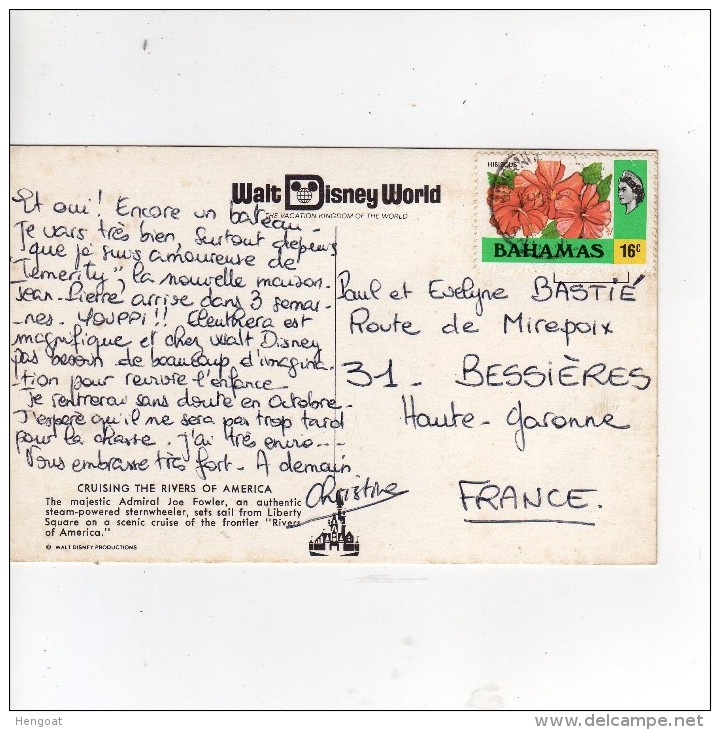 Walt Disney World
THE VACATION KINGDOM OF THE WORLD
HIBISCUS
BAHAMAS 16c
Et oui! Encore un bateau-
Je vais très bien, surtout depuis
que je suis amoureuse de
"Temerity", la nouvelle maison-
Jean-Pierre arrive dans 3 semai-
-nes. YOUPPI!! Eleuthera est
magnifique et chez Walt Disney
pas besoin de beaucoup d'imagina-
-tion pour revivre l'enfance
Je rentrerai sans doute en octobre-
J'espère qu'il ne sera pas trop tard
pour la chasse. J'ai très envie---
Vous embrasse très fort- A demain
Christine
Paul et Evelyne BASTIÉ
Route de Mirepoix
31- BESSIÈRES
Haute-Garonne
FRANCE.
CRUISING THE RIVERS OF AMERICA
The majestic Admiral Joe Fowler, an authentic
steam-powered sternwheeler, sets sail from Liberty
Square on a scenic cruise of the frontier "Rivers
of America."
© WALT DISNEY PRODUCTIONS
Hengoat
delcampe.net